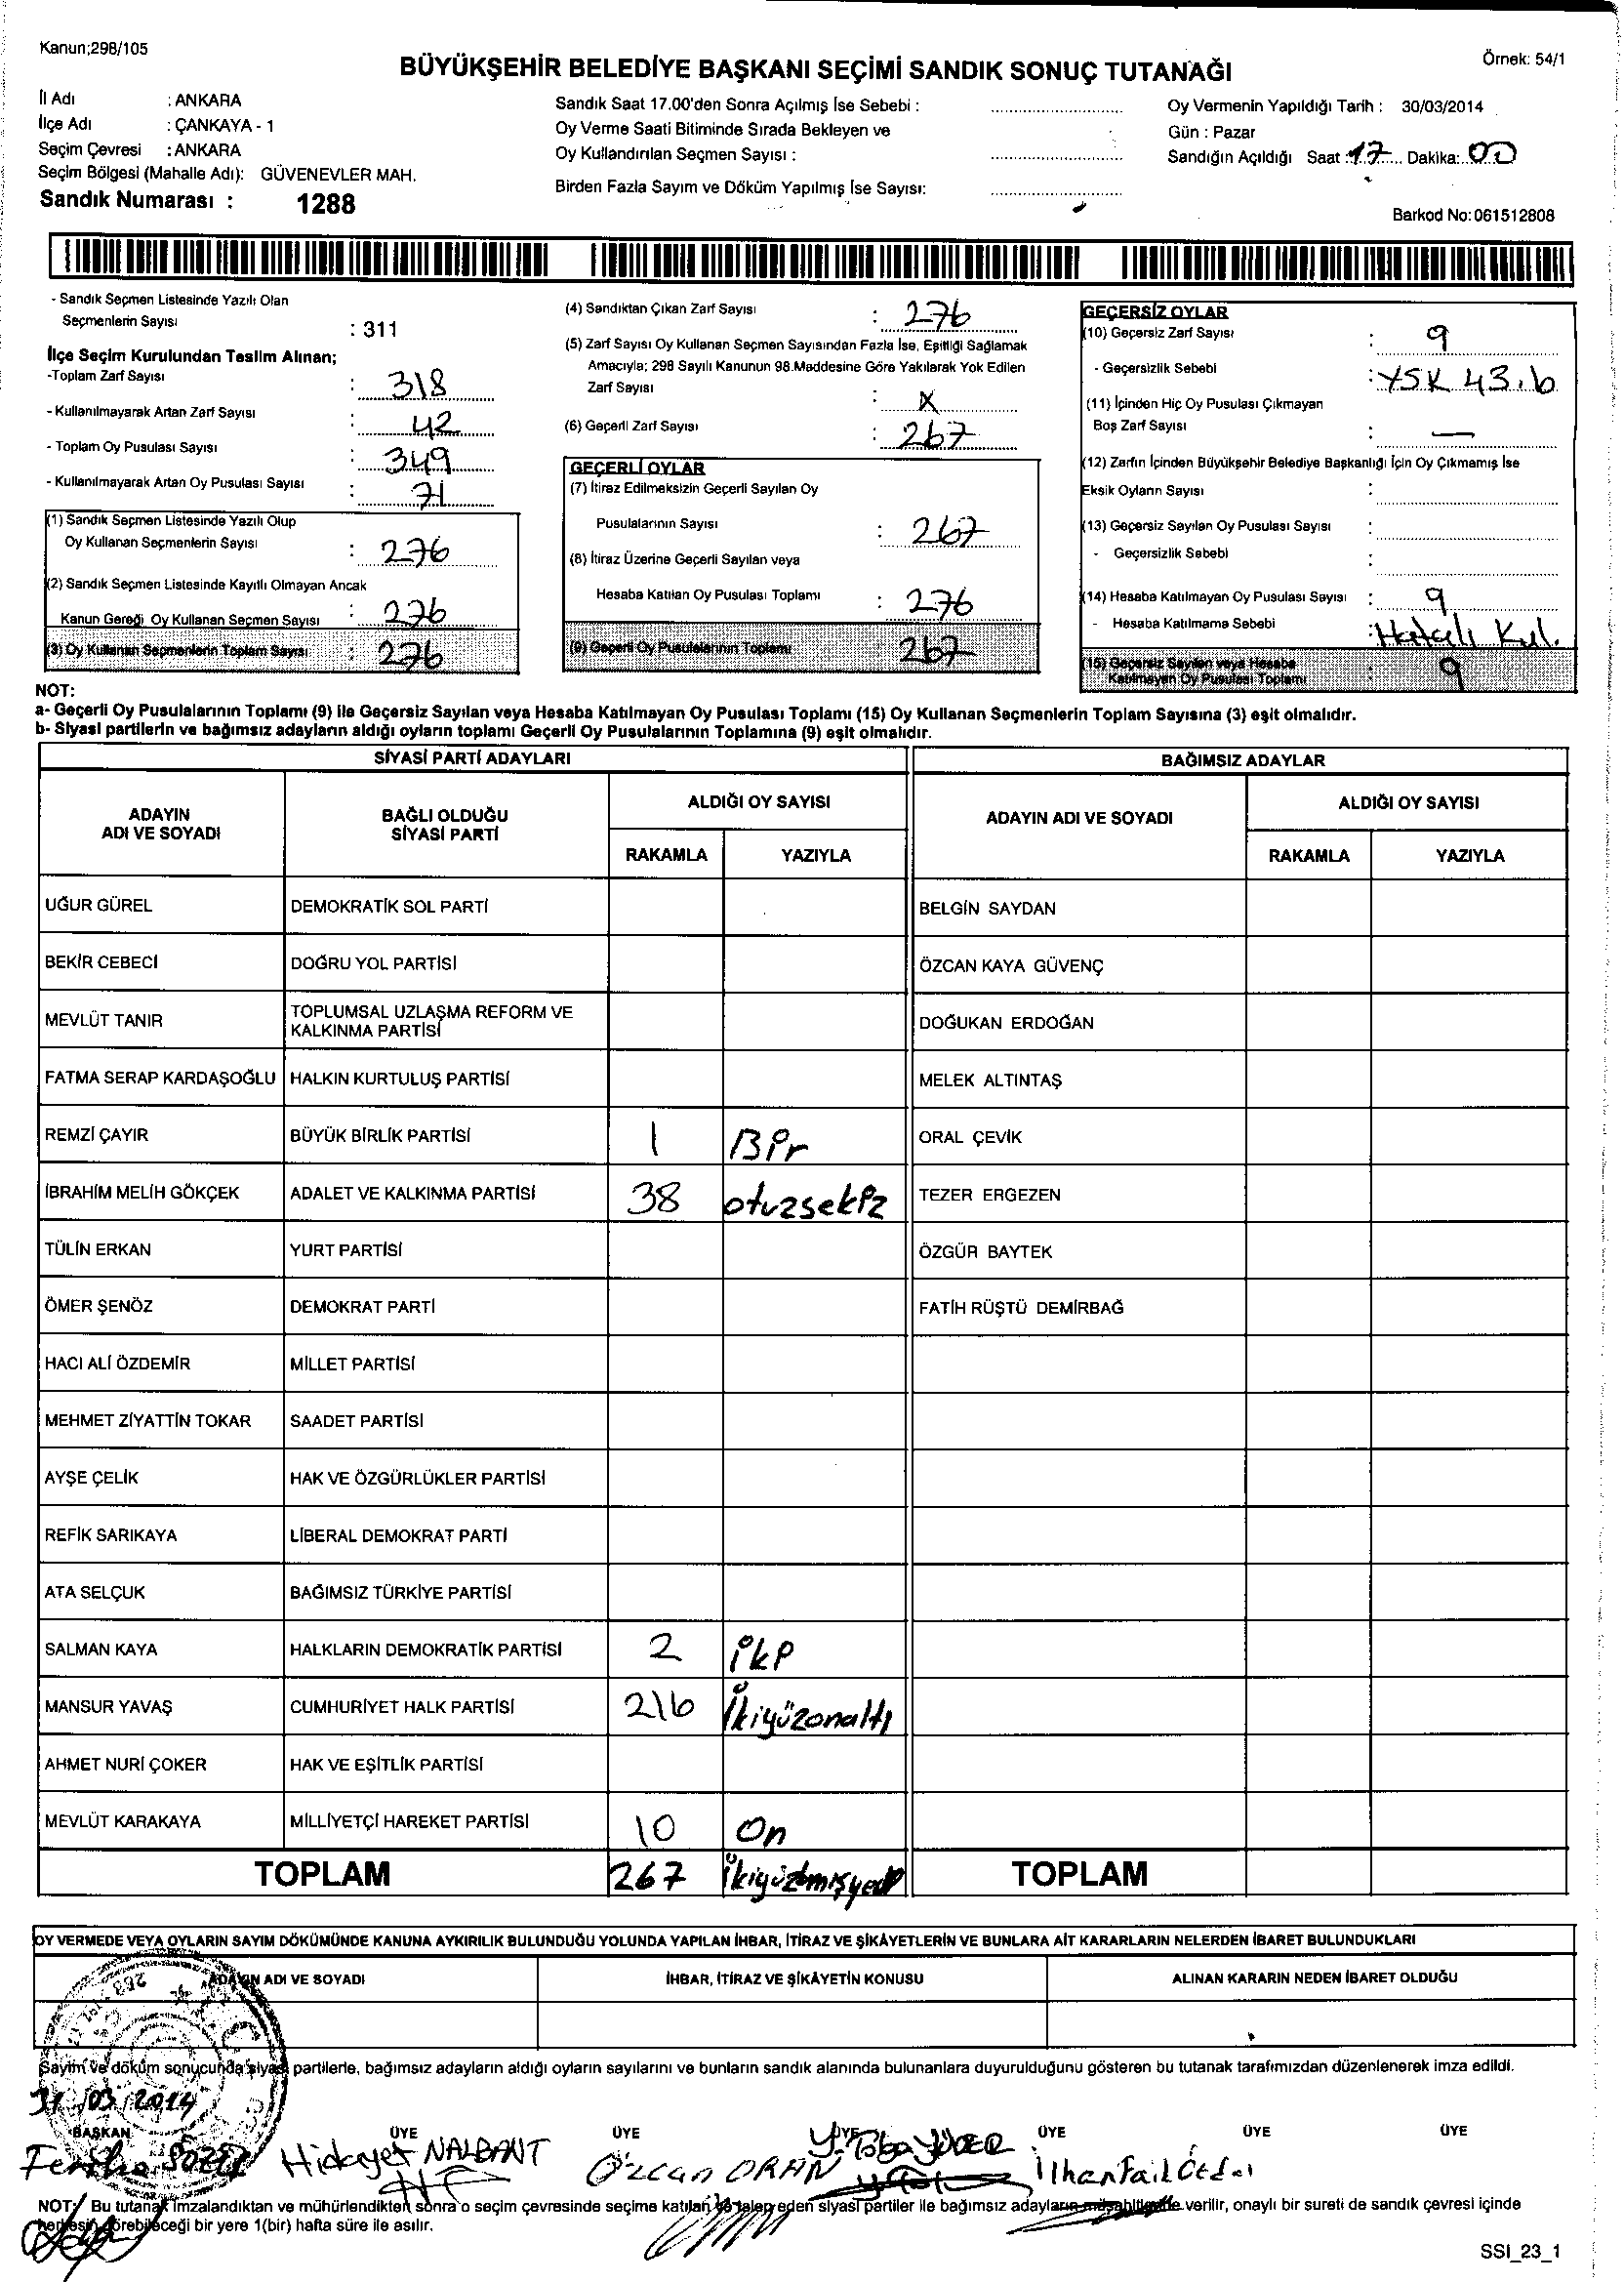 Kanun;298/105
Örnek: 54/1
BÜYÜKŞEHİR BELEDİYE BAŞKANI SEÇİMİ SANDIK SONUÇ TUTANAĞI
İl Adı : ANKARA
İlçe Adı : ÇANKAYA - 1
Seçim Çevresi : ANKARA
Seçim Bölgesi (Mahalle Adı): GÜVENEVLER MAH.
Sandık Numarası : 1288
Sandık Saat 17.00'den Sonra Açılmış İse Sebebi :
Oy Verme Saati Bitiminde Sırada Bekleyen ve
Oy Kullandırılan Seçmen Sayısı :
Birden Fazla Sayım ve Döküm Yapılmış İse Sayısı:
Oy Vermenin Yapıldığı Tarih : 30/03/2014
Gün : Pazar
Sandığın Açıldığı Saat : 17 Dakika: 00
Barkod No:061512808
- Sandık Seçmen Listesinde Yazılı Olan
Seçmenlerin Sayısı : 311
İlçe Seçim Kurulundan Teslim Alınan;
-Toplam Zarf Sayısı : 318
- Kullanılmayarak Artan Zarf Sayısı : 42
- Toplam Oy Pusulası Sayısı : 349
- Kullanılmayarak Artan Oy Pusulası Sayısı : 71
(1) Sandık Seçmen Listesinde Yazılı Olup
Oy Kullanan Seçmenlerin Sayısı : 276
(2) Sandık Seçmen Listesinde Kayıtlı Olmayan Ancak
Kanun Gereği Oy Kullanan Seçmen Sayısı : 276
(3) Oy Kullanan Seçmenlerin Toplam Sayısı : 276
(4) Sandıktan Çıkan Zarf Sayısı : 276
(5) Zarf Sayısı Oy Kullanan Seçmen Sayısından Fazla İse, Eşitliği Sağlamak
Amacıyla; 298 Sayılı Kanunun 98.Maddesine Göre Yakılarak Yok Edilen
Zarf Sayısı : X
(6) Geçerli Zarf Sayısı : 267
GEÇERLİ OYLAR
(7) İtiraz Edilmeksizin Geçerli Sayılan Oy
Pusulalarının Sayısı : 267
(8) İtiraz Üzerine Geçerli Sayılan veya
Hesaba Katılan Oy Pusulası Toplamı : 276
(9) Geçerli Oy Pusulalarının Toplamı 267
GEÇERSİZ OYLAR
(10) Geçersiz Zarf Sayısı : 9
- Geçersizlik Sebebi : YSK 43.b
(11) İçinden Hiç Oy Pusulası Çıkmayan
Boş Zarf Sayısı : —
(12) Zarfın İçinden Büyükşehir Belediye Başkanlığı İçin Oy Çıkmamış İse
Eksik Oyların Sayısı :
(13) Geçersiz Sayılan Oy Pusulası Sayısı :
- Geçersizlik Sebebi :
(14) Hesaba Katılmayan Oy Pusulası Sayısı : 9
- Hesaba Katılmama Sebebi : Hatalı Kul.
(15) Geçersiz Sayılan veya Hesaba
Katılmayan Oy Pusulası Toplamı : 9
NOT:
a- Geçerli Oy Pusulalarının Toplamı (9) ile Geçersiz Sayılan veya Hesaba Katılmayan Oy Pusulası Toplamı (15) Oy Kullanan Seçmenlerin Toplam Sayısına (3) eşit olmalıdır.
b- Siyasi partilerin ve bağımsız adayların aldığı oyların toplamı Geçerli Oy Pusulalarının Toplamına (9) eşit olmalıdır.
SİYASİ PARTİ ADAYLARI BAĞIMSIZ ADAYLAR
ADAYIN ADI VE SOYADI BAĞLI OLDUĞU SİYASİ PARTİ ALDIĞI OY SAYISI ADAYIN ADI VE SOYADI ALDIĞI OY SAYISI
RAKAMLA YAZIYLA RAKAMLA YAZIYLA
UĞUR GÜREL DEMOKRATİK SOL PARTİ BELGİN SAYDAN
BEKİR CEBECİ DOĞRU YOL PARTİSİ ÖZCAN KAYA GÜVENÇ
MEVLÜT TANIR TOPLUMSAL UZLAŞMA REFORM VE KALKINMA PARTİSİ DOĞUKAN ERDOĞAN
FATMA SERAP KARDAŞOĞLU HALKIN KURTULUŞ PARTİSİ MELEK ALTINTAŞ
REMZİ ÇAYIR BÜYÜK BİRLİK PARTİSİ 1 Bir ORAL ÇEVİK
İBRAHİM MELİH GÖKÇEK ADALET VE KALKINMA PARTİSİ 38 otuzsekiz TEZER ERGEZEN
TÜLİN ERKAN YURT PARTİSİ ÖZGÜR BAYTEK
ÖMER ŞENÖZ DEMOKRAT PARTİ FATİH RÜŞTÜ DEMİRBAĞ
HACI ALİ ÖZDEMİR MİLLET PARTİSİ
MEHMET ZİYATTİN TOKAR SAADET PARTİSİ
AYŞE ÇELİK HAK VE ÖZGÜRLÜKLER PARTİSİ
REFİK SARIKAYA LİBERAL DEMOKRAT PARTİ
ATA SELÇUK BAĞIMSIZ TÜRKİYE PARTİSİ
SALMAN KAYA HALKLARIN DEMOKRATİK PARTİSİ 2 iki
MANSUR YAVAŞ CUMHURİYET HALK PARTİSİ 216 İkiyüzonaltı
AHMET NURİ ÇOKER HAK VE EŞİTLİK PARTİSİ
MEVLÜT KARAKAYA MİLLİYETÇİ HAREKET PARTİSİ 10 On
TOPLAM 267 TOPLAM
OY VERMEDE VEYA OYLARIN SAYIM DÖKÜMÜNDE KANUNA AYKIRILIK BULUNDUĞU YOLUNDA YAPILAN İHBAR, İTİRAZ VE ŞİKAYETLERİN VE BUNLARA AİT KARARLARIN NELERDEN İBARET BULUNDUKLARI
ADAYIN ADI VE SOYADI İHBAR, İTİRAZ VE ŞİKAYETİN KONUSU ALINAN KARARIN NEDEN İBARET OLDUĞU
Sayım ve döküm sonucunda siyasi partilerle, bağımsız adayların aldığı oyların sayılarını ve bunların sandık alanında bulunanlara duyurulduğunu gösteren bu tutanak tarafımızdan düzenlenerek imza edildi.
31/03/2014
BAŞKAN ÜYE ÜYE ÜYE ÜYE ÜYE ÜYE
Hidayet NALBANT Özcan ORAN
NOT: Bu tutanak imzalandıktan ve mühürlendikten sonra o seçim çevresinde seçime katılan ve talep eden siyasi partiler ile bağımsız adayların müşahitlerine verilir, onaylı bir sureti de sandık çevresi içinde
herkesin görebileceği bir yere 1(bir) hafta süre ile asılır.
SSI_23_1